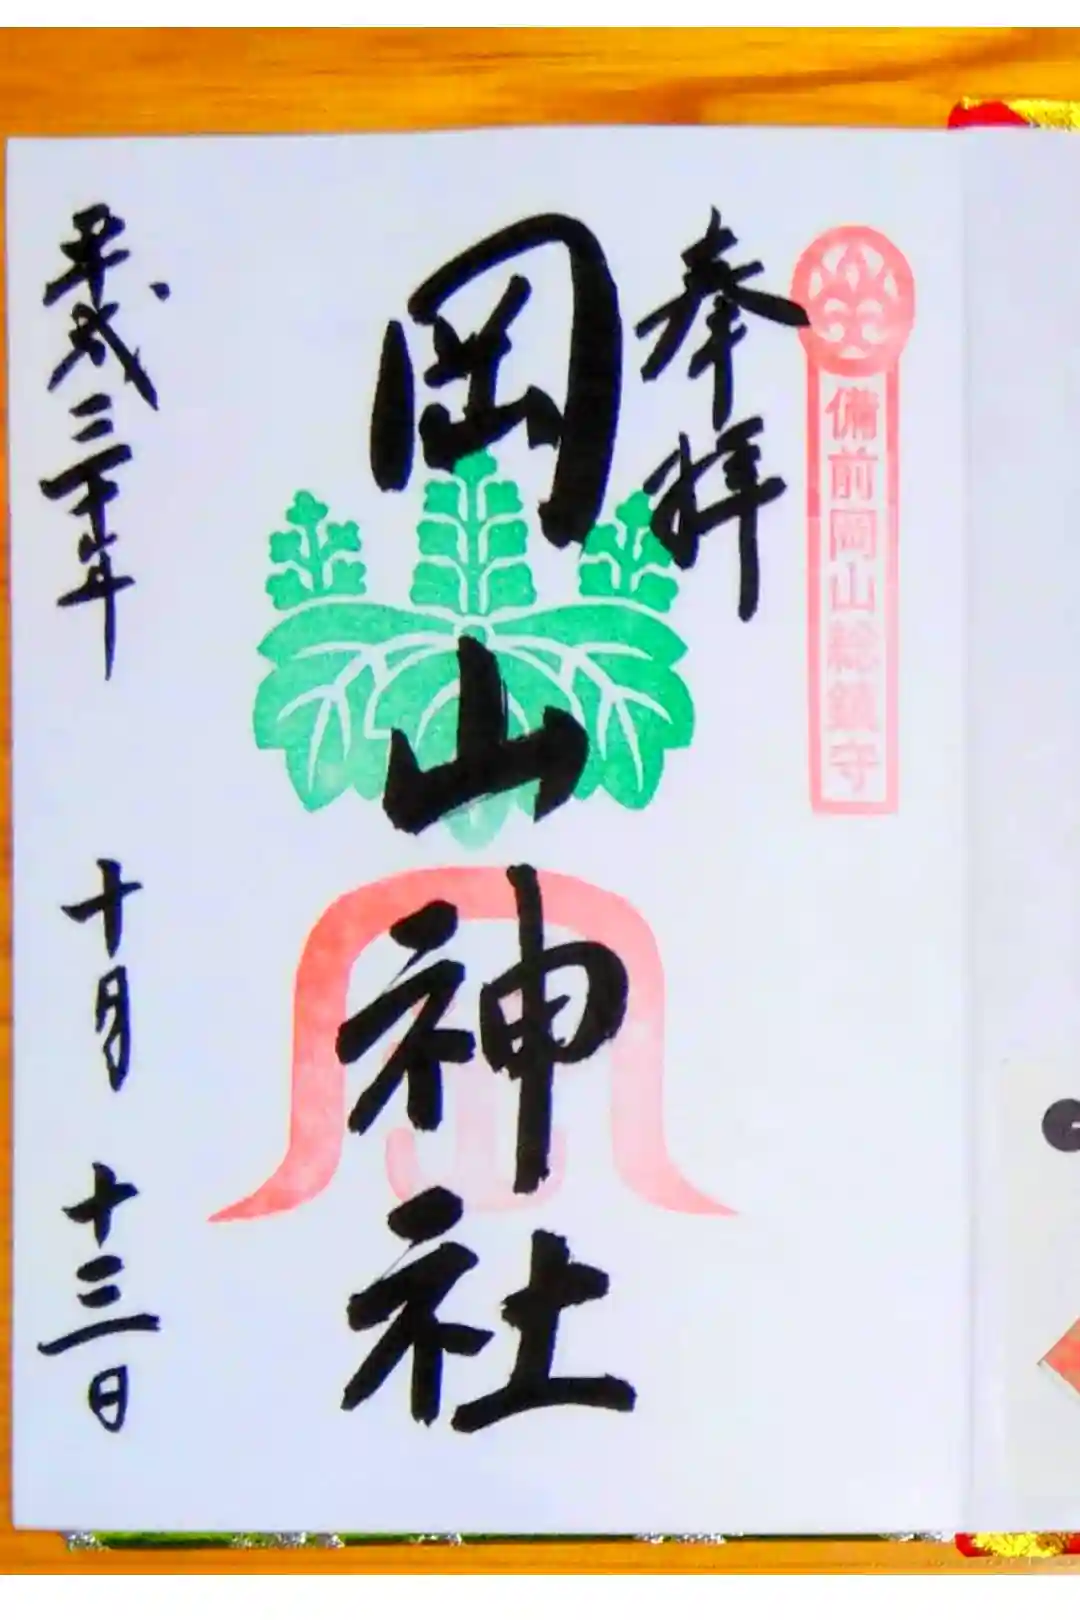 備前岡山総鎮守
奉拝
岡山神社
平成三十年 十月 十三日